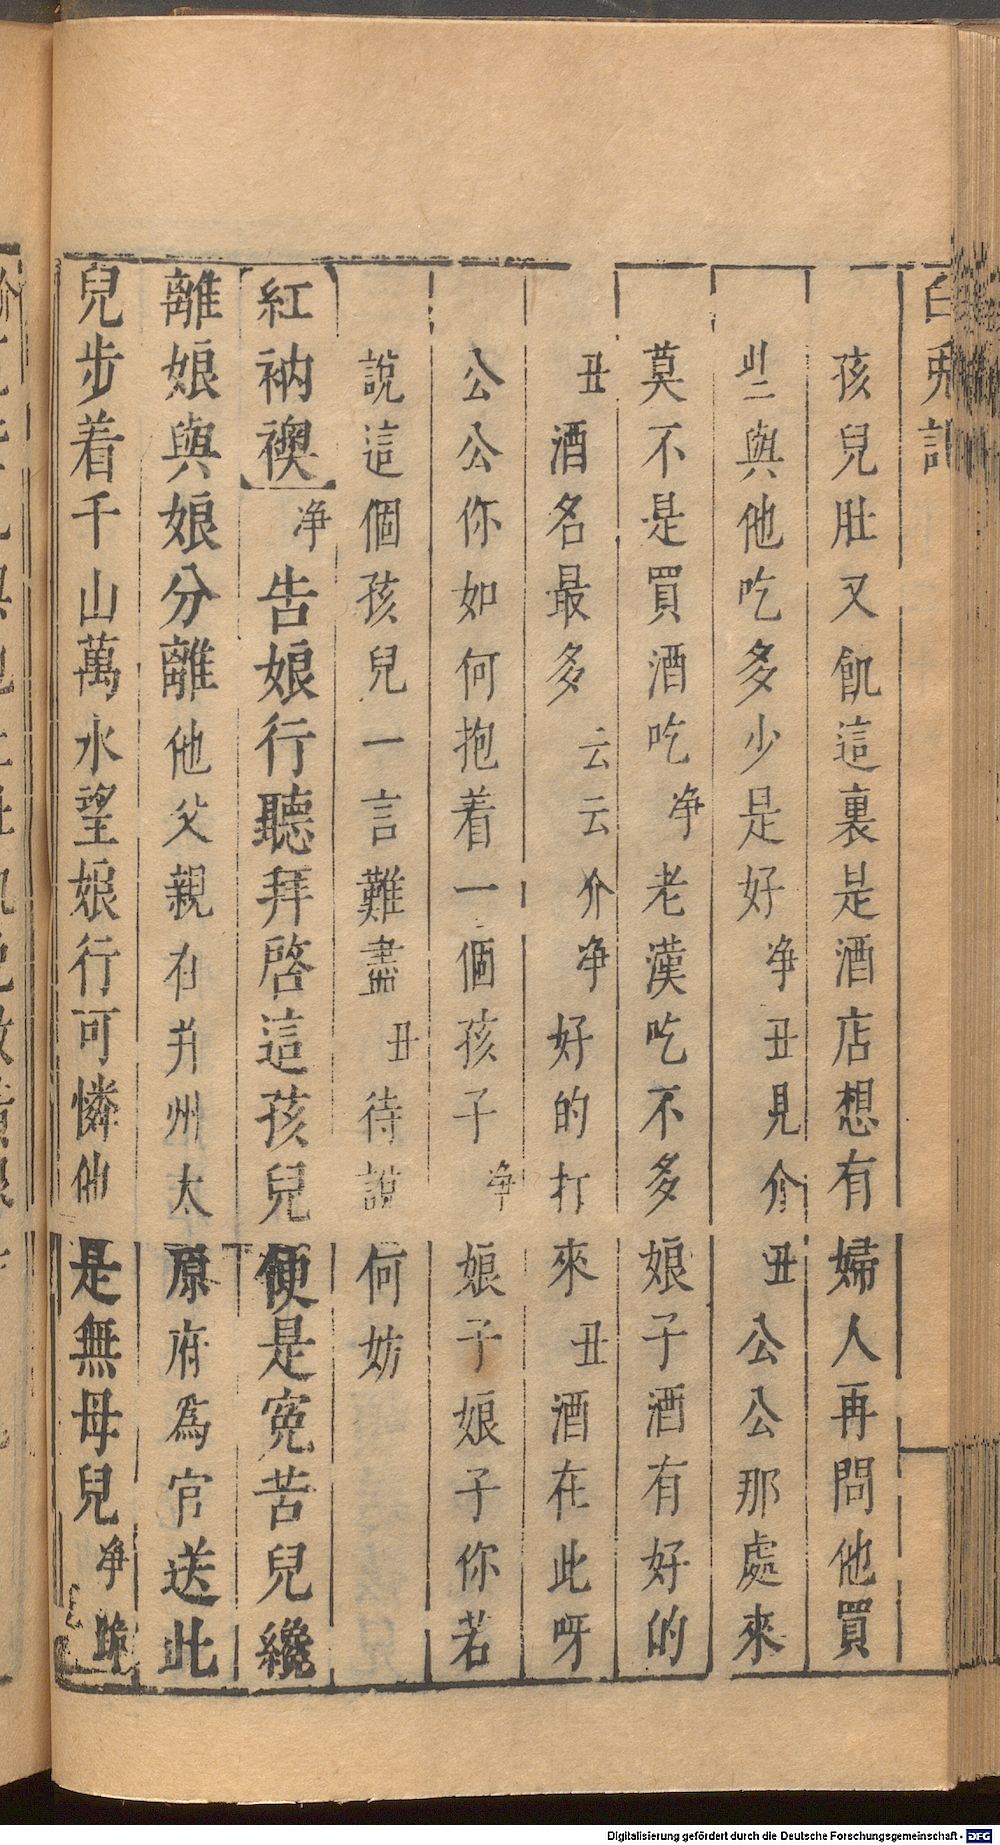 白兎記
孩兒肚又飢這裏是酒店想有婦人再問他買
些與他吃多少是好净丑見介丑公公那處來
莫不是買酒吃净老漢吃不多娘子酒有好的
丑酒名最多云云介净好的打來丑酒在此呀
公公你如何抱着一個孩子净娘子娘子你若
說這個孩兒一言難盡丑待說何妨
紅衲襖净告娘行聽拜啓這孩兒便是寃苦兒纔
離娘與娘分離他父親在并州太原府爲官送此
兒步着千山萬水望娘行可憐他是無母兒净跪
Digitalisierung gefördert durch die Deutsche Forschungsgemeinschaft - DFG